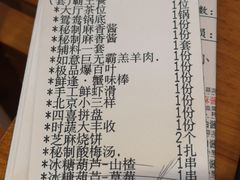 *大厅茶位 1位
*鸳鸯锅底 1锅
*秘制麻香酱 1份
*秘制麻香酱 1份
*辅料一套 1套
*如意巨无霸羔羊肉. 1份
*极品爆百叶 1份
*鲜逢·蟹味棒 1份
*手工鲜虾滑 1份
*北京小三样 1份
*四喜拼盘 1份
*时蔬大丰收 1份
*芝麻烧饼 2个
*秘制酸梅汤. 1扎
*冰糖葫芦-山楂 1串
*冰糖葫芦-草莓 1串
数:
员:
小